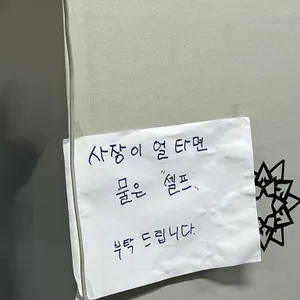 사장이 얼 타면
물은 "셀프"
부탁드립니다.